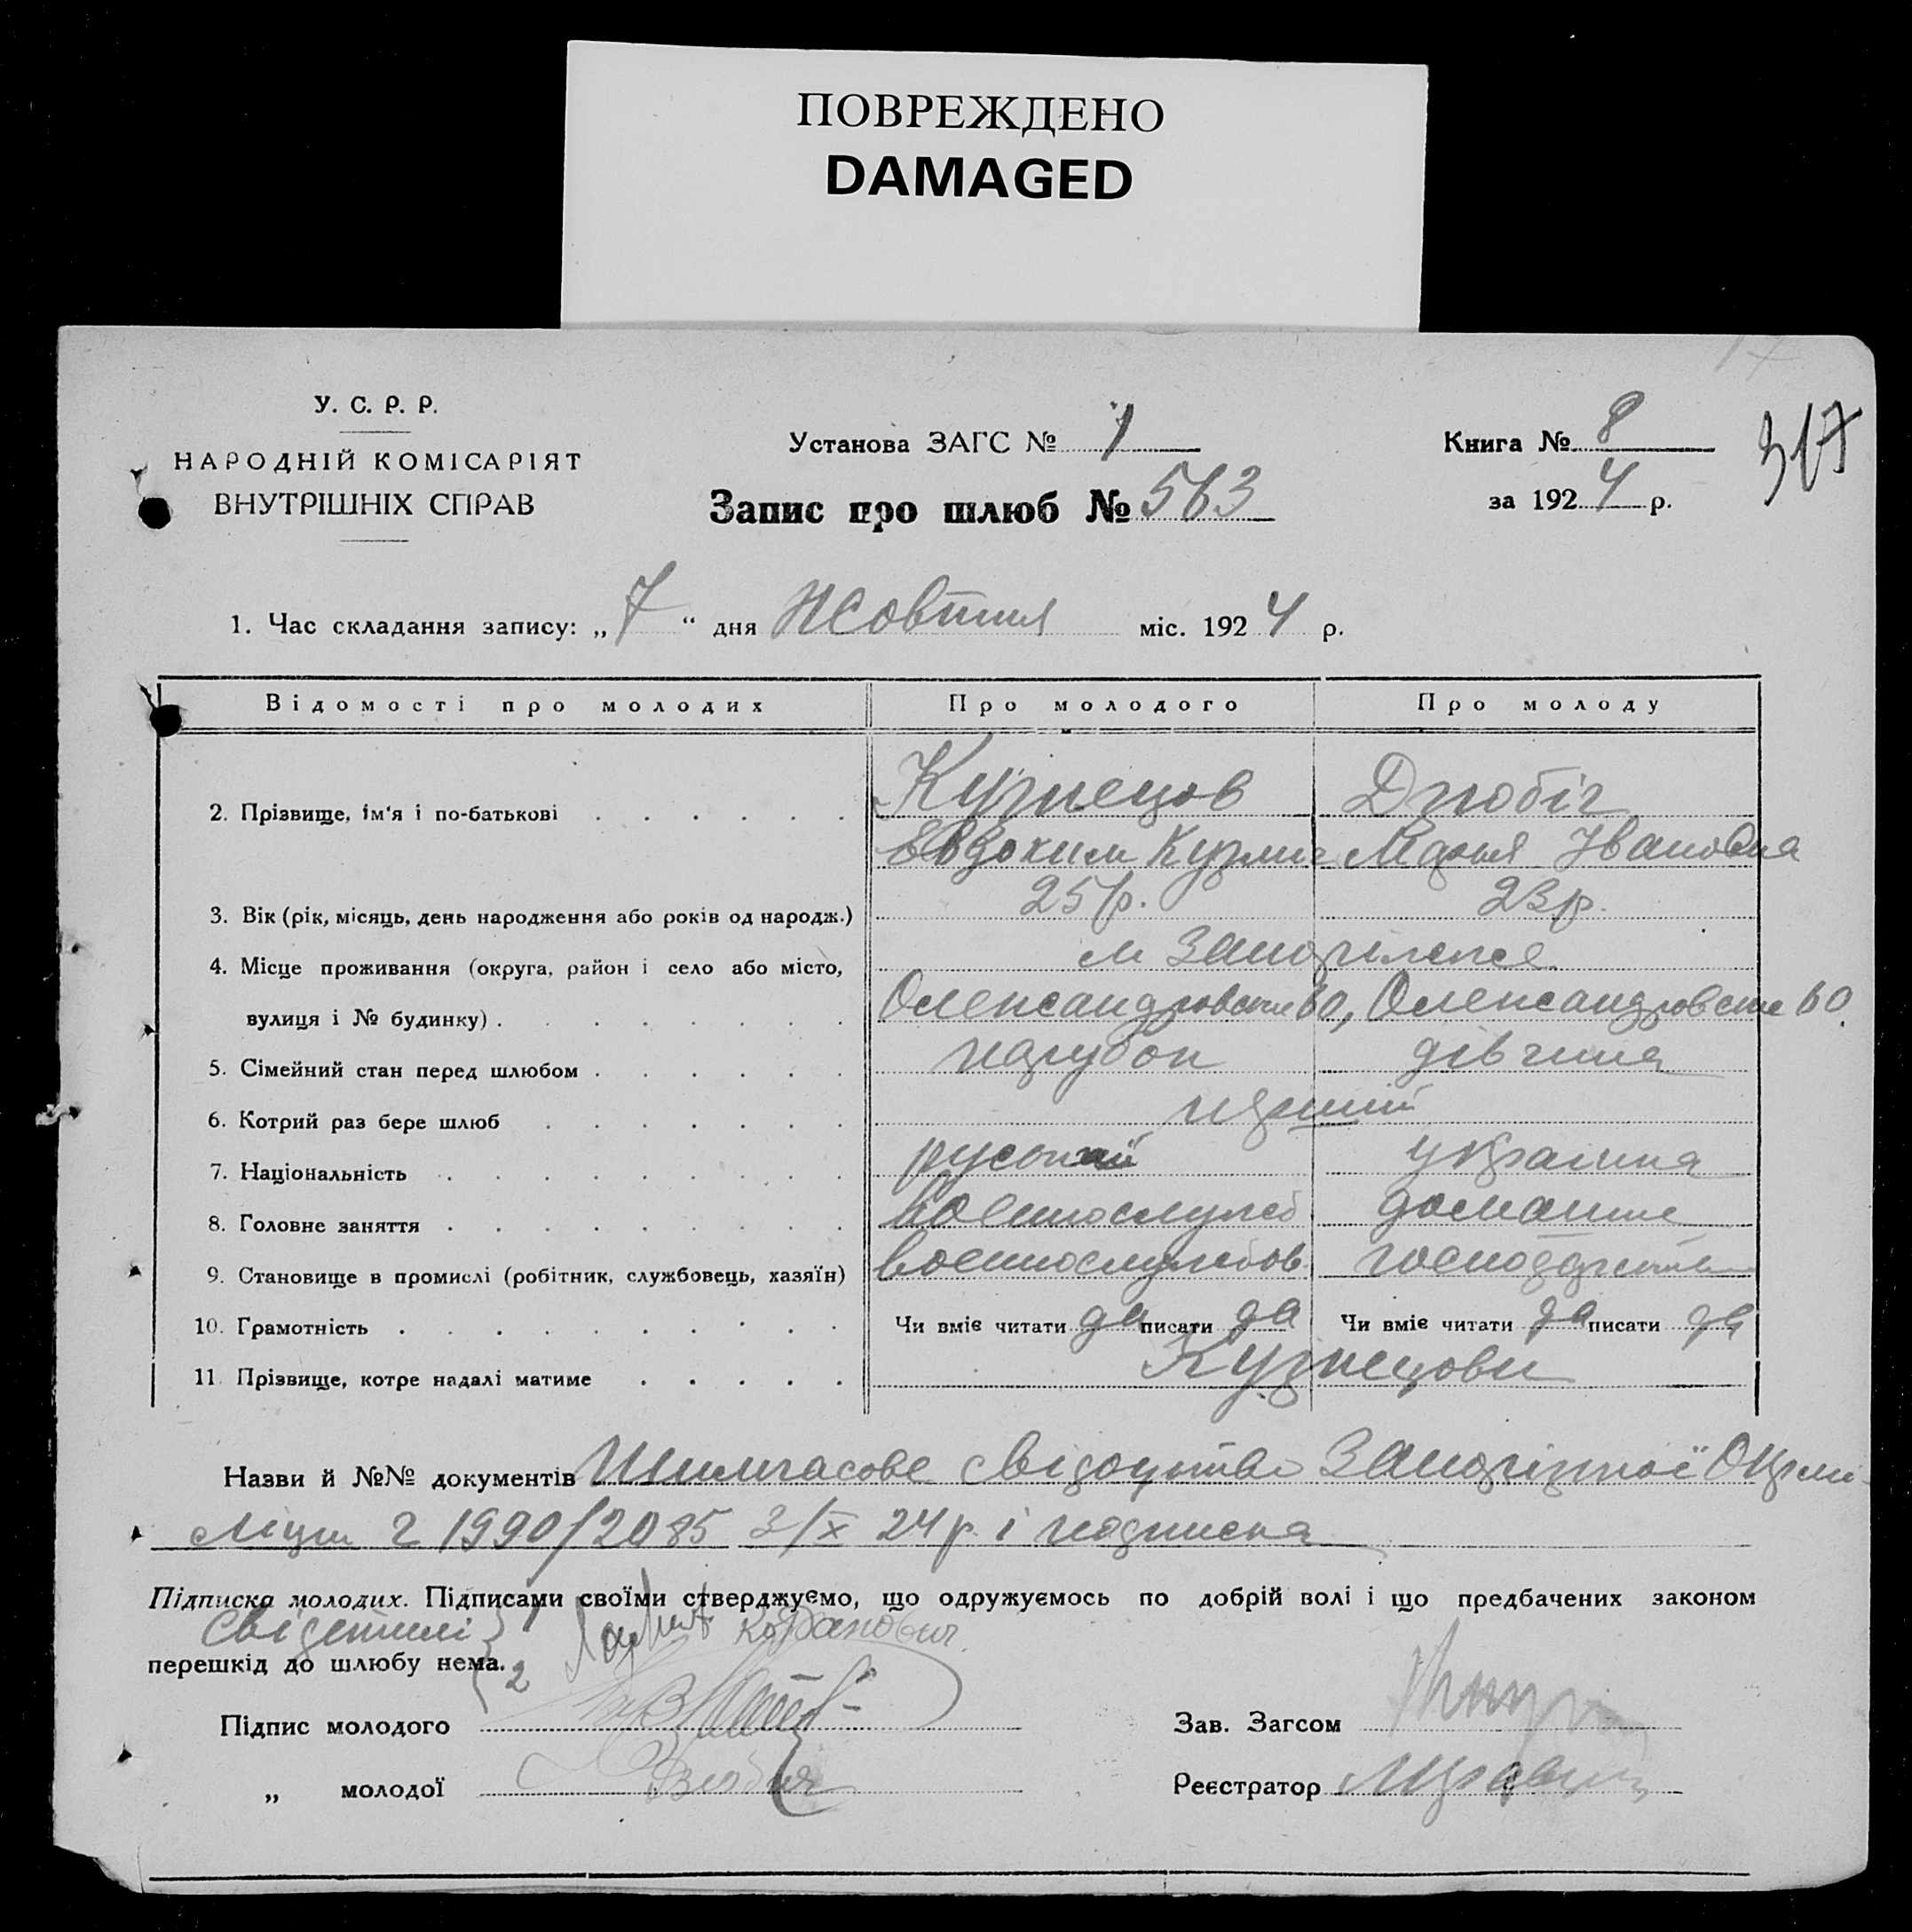 ПОВРЕЖДЕНО
DAMAGED
У. С. Р. Р.
НАРОДНІЙ КОМІСАРІЯТ
ВНУТРІШНІХ СПРАВ
Установа ЗАГС № 1
Запис про шлюб № 563
Книга № 8
за 1924 р.
317
1. Час складання запису: „7“ дня Жовтня міс. 1924 р.
Відомості про молодих Про молодого Про молоду
2. Прізвище, ім'я і по-батькові Кузнецов
Евдоким Кузмич Марія Івановна
3. Вік (рік, місяць, день народження або років од народж.) 25 р. 23 р.
4. Місце проживання (округа, район і село або місто, м Запоріжжє
вулиця і № будинку) Олександровське 60, Олександровське 60
5. Сімейний стан перед шлюбом парубок дівчина
6. Котрий раз бере шлюб перший
7. Національність руський україниа
8. Головне заняття военнослужб домашнє
9. Становище в промислі (робітник, службовець, хазяїн) военнослужбов
10. Грамотність Чи вміє читати да писати да Чи вміє читати да писати да
11. Прізвище, котре надалі матиме Кузнецови
Назви й №№ документів свідоцтво Запорізької
Міліц 1990/2085 3/X 24 р. і подписка
Підписка молодих. Підписами своїми стверджуємо, що одружуємось по добрій волі і що предбачених законом
перешкід до шлюбу нема.
Свідетелі 1
2
Підпис молодого
„ молодої
Зав. Загсом
Реєстратор